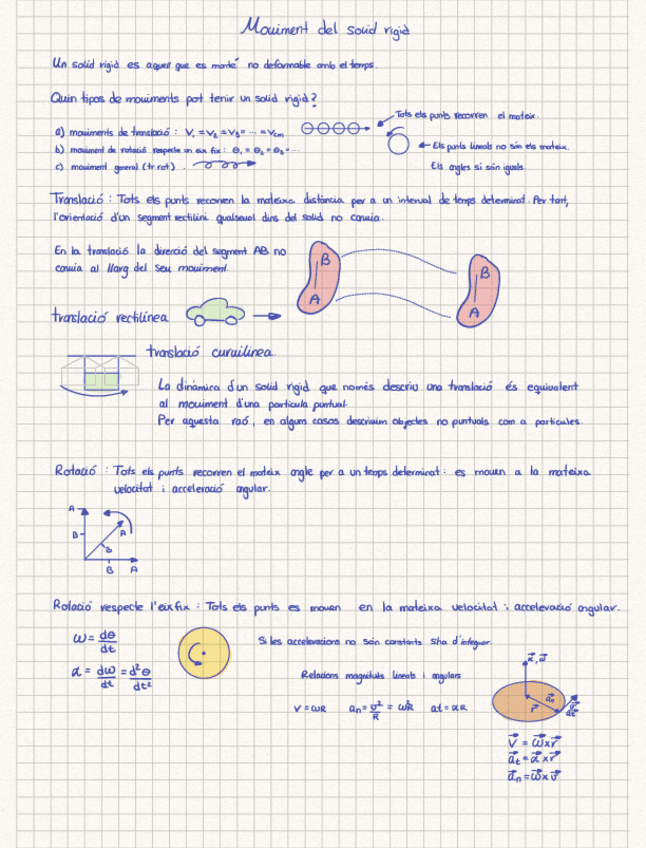 Moviment del sòlid rígid
Un sòlid rígid es aquell que es manté no deformable amb el temps.
Quin tipos de moviments pot tenir un sòlid rígid?
a) moviments de translació : V₁ = V₂ = V₃ = ... = Vcm
Tots els punts recorren el mateix.
b) moviment de rotació respecte un eix fix : θ₁ = θ₂ = θ₃ = ...
Els punts lineals no són els mateix.
c) moviment general (tr+rot) .
Els angles si són iguals.
Translació : Tots els punts recorren la mateixa distància per a un interval de temps determinat. Per tant,
l'orientació d'un segment rectilini qualsevol dins del sòlid no canvia.
En la translació la direcció del segment AB no
canvia al llarg del seu moviment.
B
A
B
A
translació rectilínea
translació curvilínea
La dinàmica d'un sòlid rígid que només descriu una translació és equivalent
al moviment d'una partícula puntual.
Per aquesta raó, en alguns casos descrivim objectes no puntuals com a partícules.
Rotació : Tots els punts recorren el mateix angle per a un temps determinat : es mouen a la mateixa
velocitat i acceleració angular.
A
B
A
B
B A
Rotació respecte l'eix fix : Tots els punts es mouen en la mateixa velocitat i acceleració angular.
ω = dθ/dt
Si les acceleracions no són constants s'ha d'integrar
α = dω/dt = d²θ/dt²
Relacions magnituds lineals i angulars
v = ωR aₙ = v²/R = ω²R at = αR
α⃗, ω⃗
a⃗ₙ
r⃗
v⃗
a⃗t
v⃗ = ω⃗ x r⃗
a⃗t = α⃗ x r⃗
a⃗n = ω⃗ x v⃗